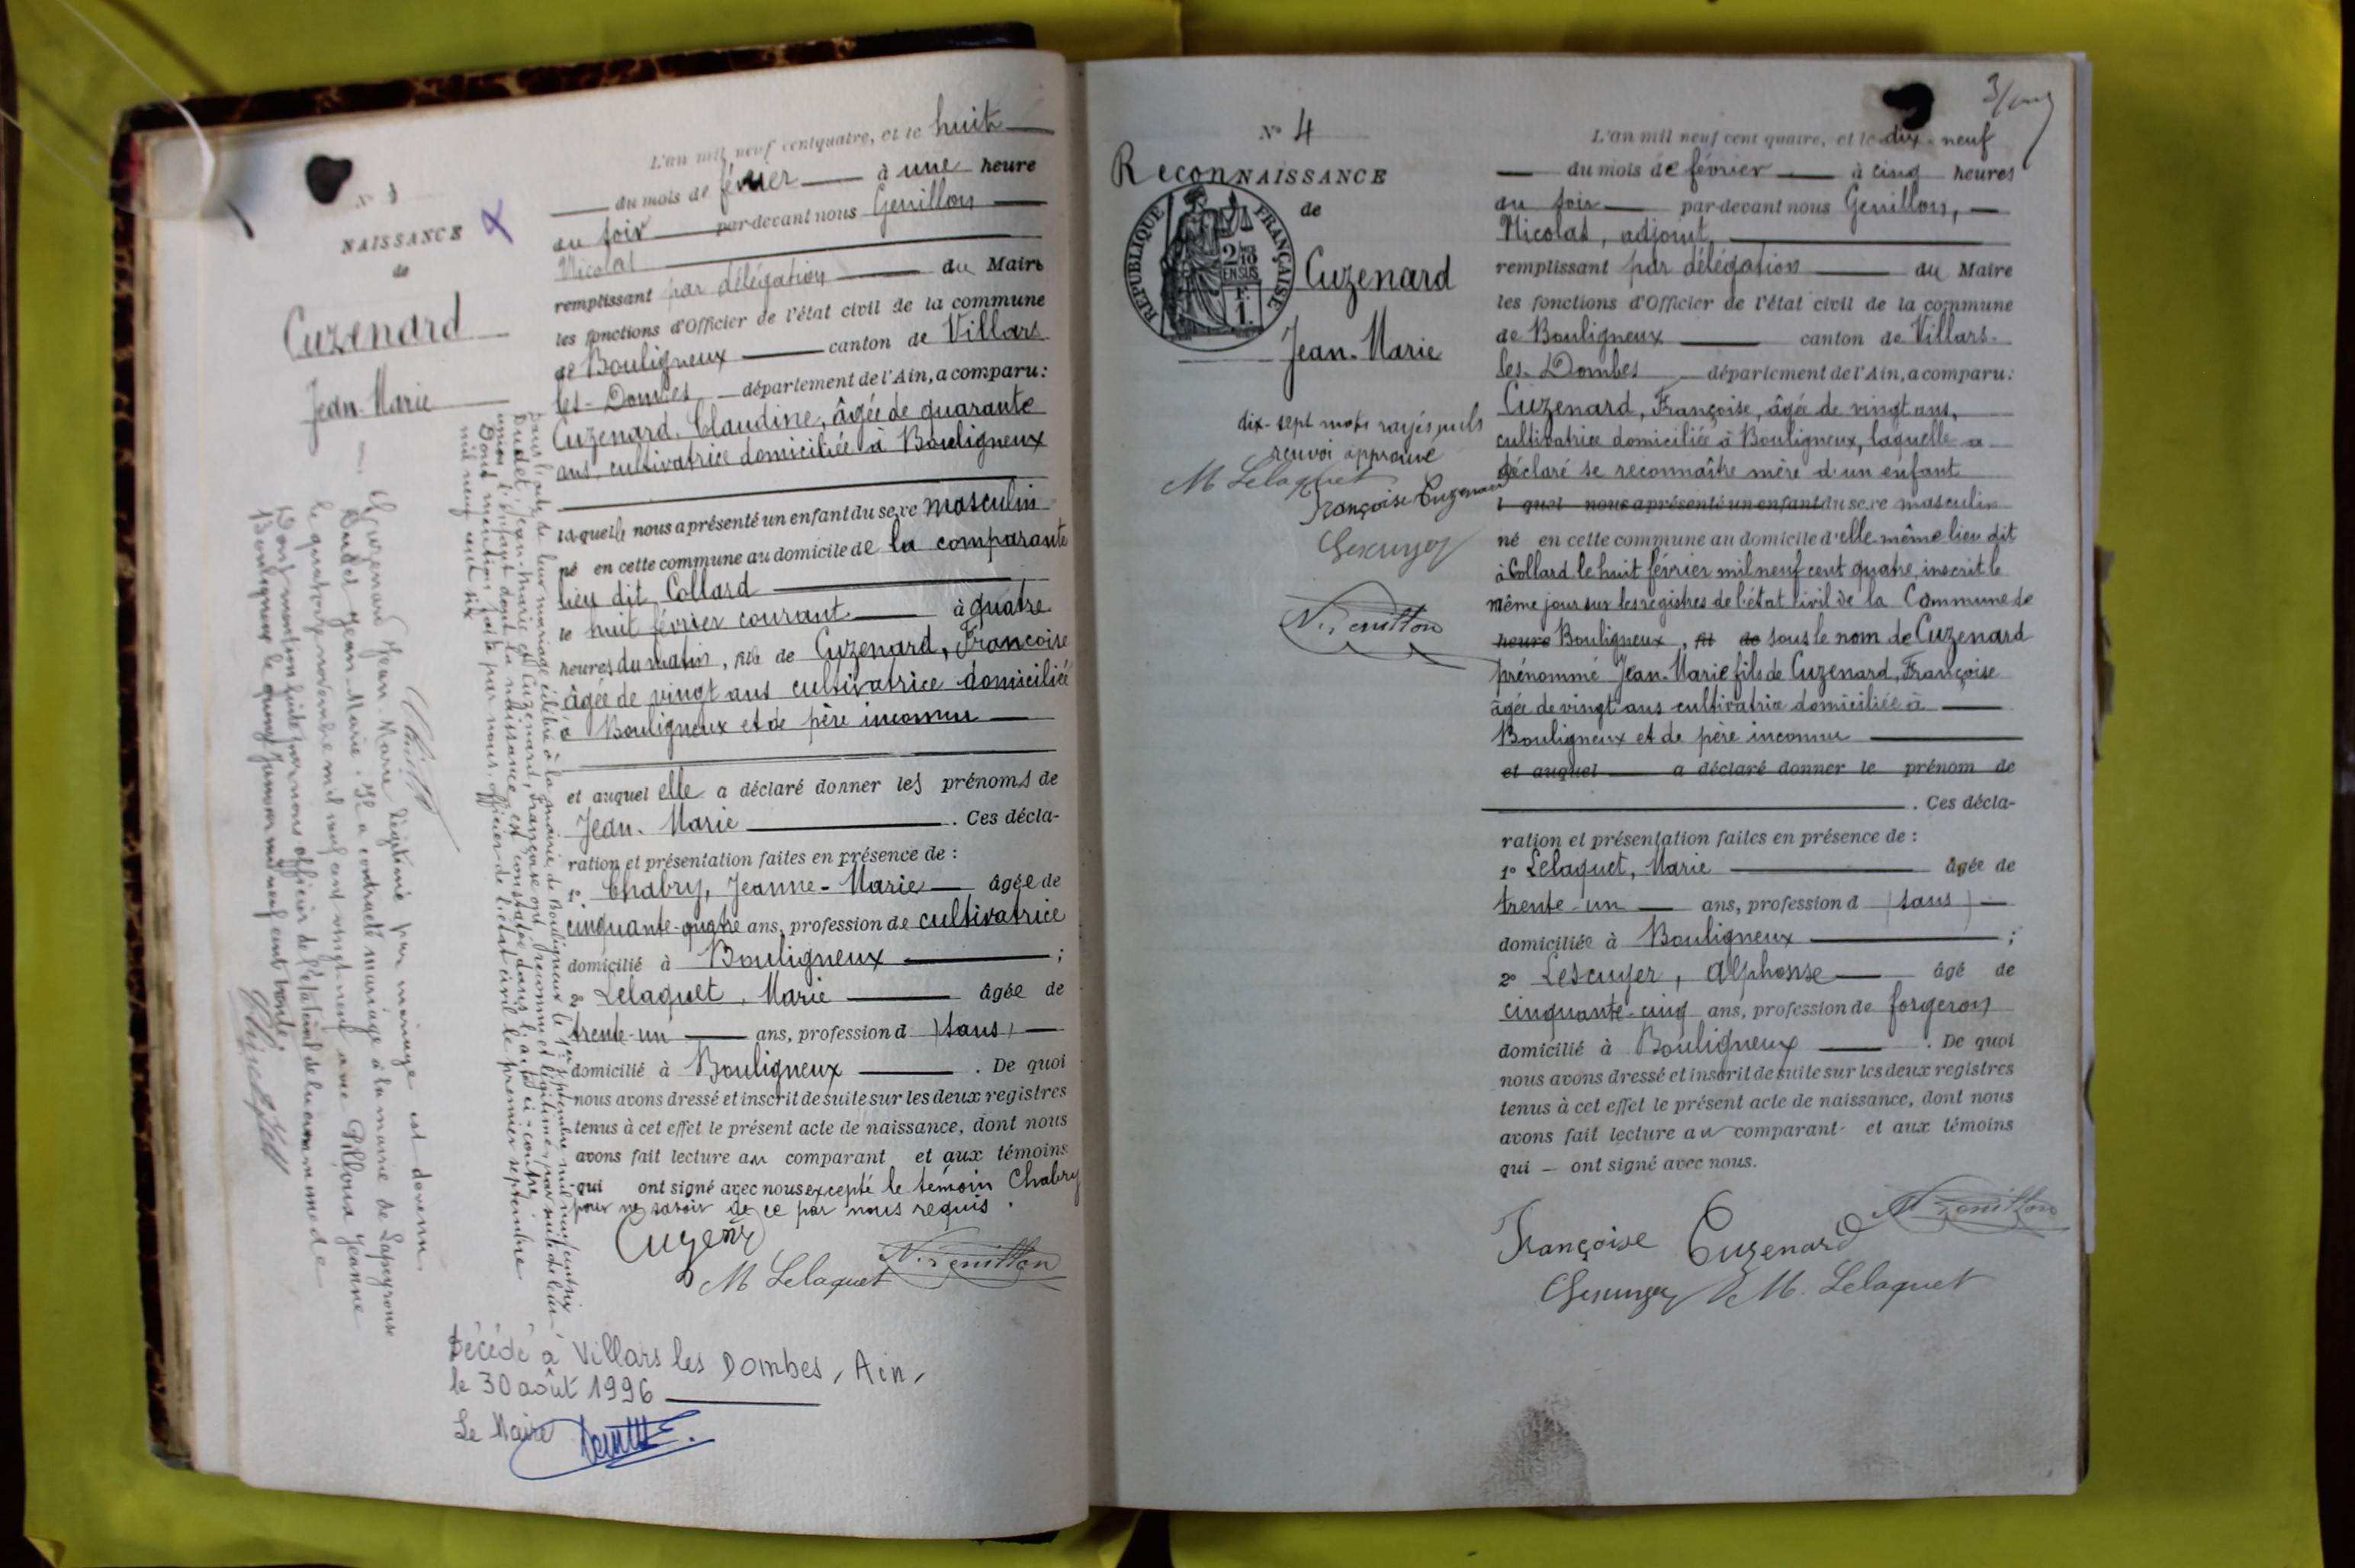 N° 3
NAISSANCE
de
Cuzenard
Jean-Marie
L'an mil neuf cent quatre, et le huit
du mois de février à une heure
du soir par-devant nous Genillon
Nicolas
remplissant par délégation du Maire
les fonctions d'Officier de l'état civil de la commune
de Bouligneux canton de Villars
les-Dombes département de l'Ain, a comparu:
Cuzenard, Claudine, âgée de quarante
ans, cultivatrice domiciliée à Bouligneux
laquelle nous a présenté un enfant du sexe masculin
né en cette commune au domicile de la comparante
lieu dit Collard
le huit février courant à quatre
heures du matin, fils de Cuzenard, Francoise
âgée de vingt ans cultivatrice domiciliée
à Bouligneux et de père inconnu
et auquel elle a déclaré donner les prénoms de
Jean-Marie . Ces décla-
ration et présentation faites en présence de :
1° Chabry, Jeanne-Marie âgée de
cinquante-quatre ans, profession de cultivatrice
domicilié à Bouligneux ;
2° Lelaquet, Marie âgée de
trente-un ans, profession d (sans)
domicilié à Bouligneux . De quoi
nous avons dressé et inscrit de suite sur les deux registres
tenus à cet effet le présent acte de naissance, dont nous
avons fait lecture au comparant et aux témoins
qui ont signé avec nous excepté le témoin Chabry
pour ne savoir de ce par nous requis.
M Lelaquet
Dans l'acte de leur mariage célébré à la mairie de Bouligneux le 1er septembre mil neuf cent six
Dudet, Jean-Marie et Cuzenard, Françoise ont reconnu et légitimé, par suite de leur
union l'enfant dont la naissance est constatée dans l'acte ci-contre.
Dont mention faite par nous, officier de l'état civil le premier septembre
mil neuf cent six
Cuzenard Jean-Marie légitimé par mariage est devenu
Dudet Jean-Marie. Il a contracté mariage à la mairie de Lapeyrouse
le quatorze novembre mil neuf cent vingt neuf avec Jeanne
Dont mention faite par nous officier de l'état civil de la commune de
Bouligneux le quinze janvier mil neuf cent trente.
Décédé à Villars les Dombes, Ain,
le 30 août 1996
Le Maire
N° 4
ReconNAISSANCE
de
REPUBLIQUE FRANÇAISE
2/10
EN SUS
F.
1.
Cuzenard
Jean-Marie
dix-sept mots rayés nuls
renvoi approuvé
M Lelaquet
Françoise Cuzenard
L'an mil neuf cent quatre, et le dix-neuf
du mois de février à cinq heures
du soir par-devant nous Genillon,
Nicolas, adjoint,
remplissant par délégation du Maire
les fonctions d'Officier de l'état civil de la commune
de Bouligneux canton de Villars-
les-Dombes département de l'Ain, a comparu:
Cuzenard, Françoise, âgée de vingt ans,
cultivatrice domiciliée à Bouligneux, laquelle a
déclaré se reconnaître mère d'un enfant
l quel nous a présenté un enfant du sexe masculin
né en cette commune au domicile d'elle-même lieu dit
à Collard le huit février mil neuf cent quatre, inscrit le
même jour sur les registres de l'état civil de la Commune de
heure Bouligneux, fil de sous le nom de Cuzenard
prénommé Jean-Marie fils de Cuzenard, Françoise
âgée de vingt ans cultivatrice domiciliée à
Bouligneux et de père inconnu
et auquel a déclaré donner le prénom de
. Ces décla-
ration et présentation faites en présence de :
1° Lelaquet, Marie âgée de
trente-un ans, profession d (sans)
domiciliée à Bouligneux ;
2° Lescuyer, Alphonse âgé de
cinquante-cinq ans, profession de forgeron
domicilié à Bouligneux . De quoi
nous avons dressé et inscrit de suite sur les deux registres
tenus à cet effet le présent acte de naissance, dont nous
avons fait lecture au comparant et aux témoins
qui ont signé avec nous.
Françoise Cuzenard
M. Lelaquet